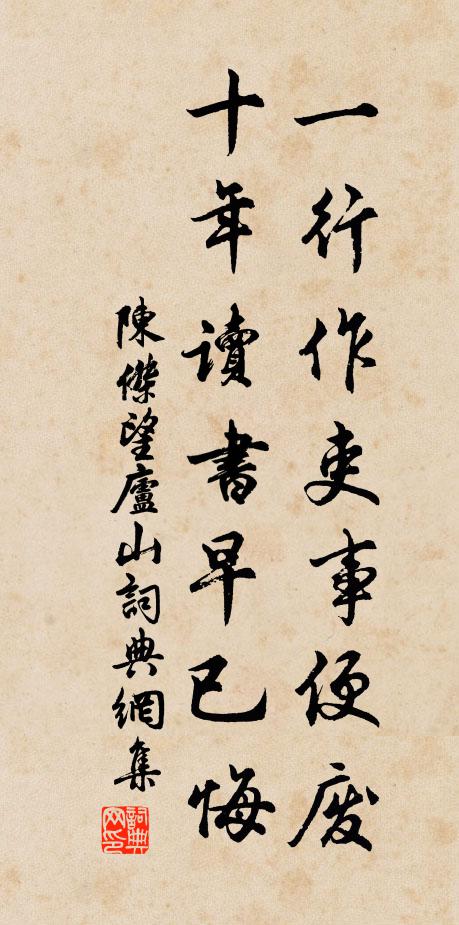 一行作吏事便废
十年讀書早已悔
陳傑望廬山詞典網集
詞典网印